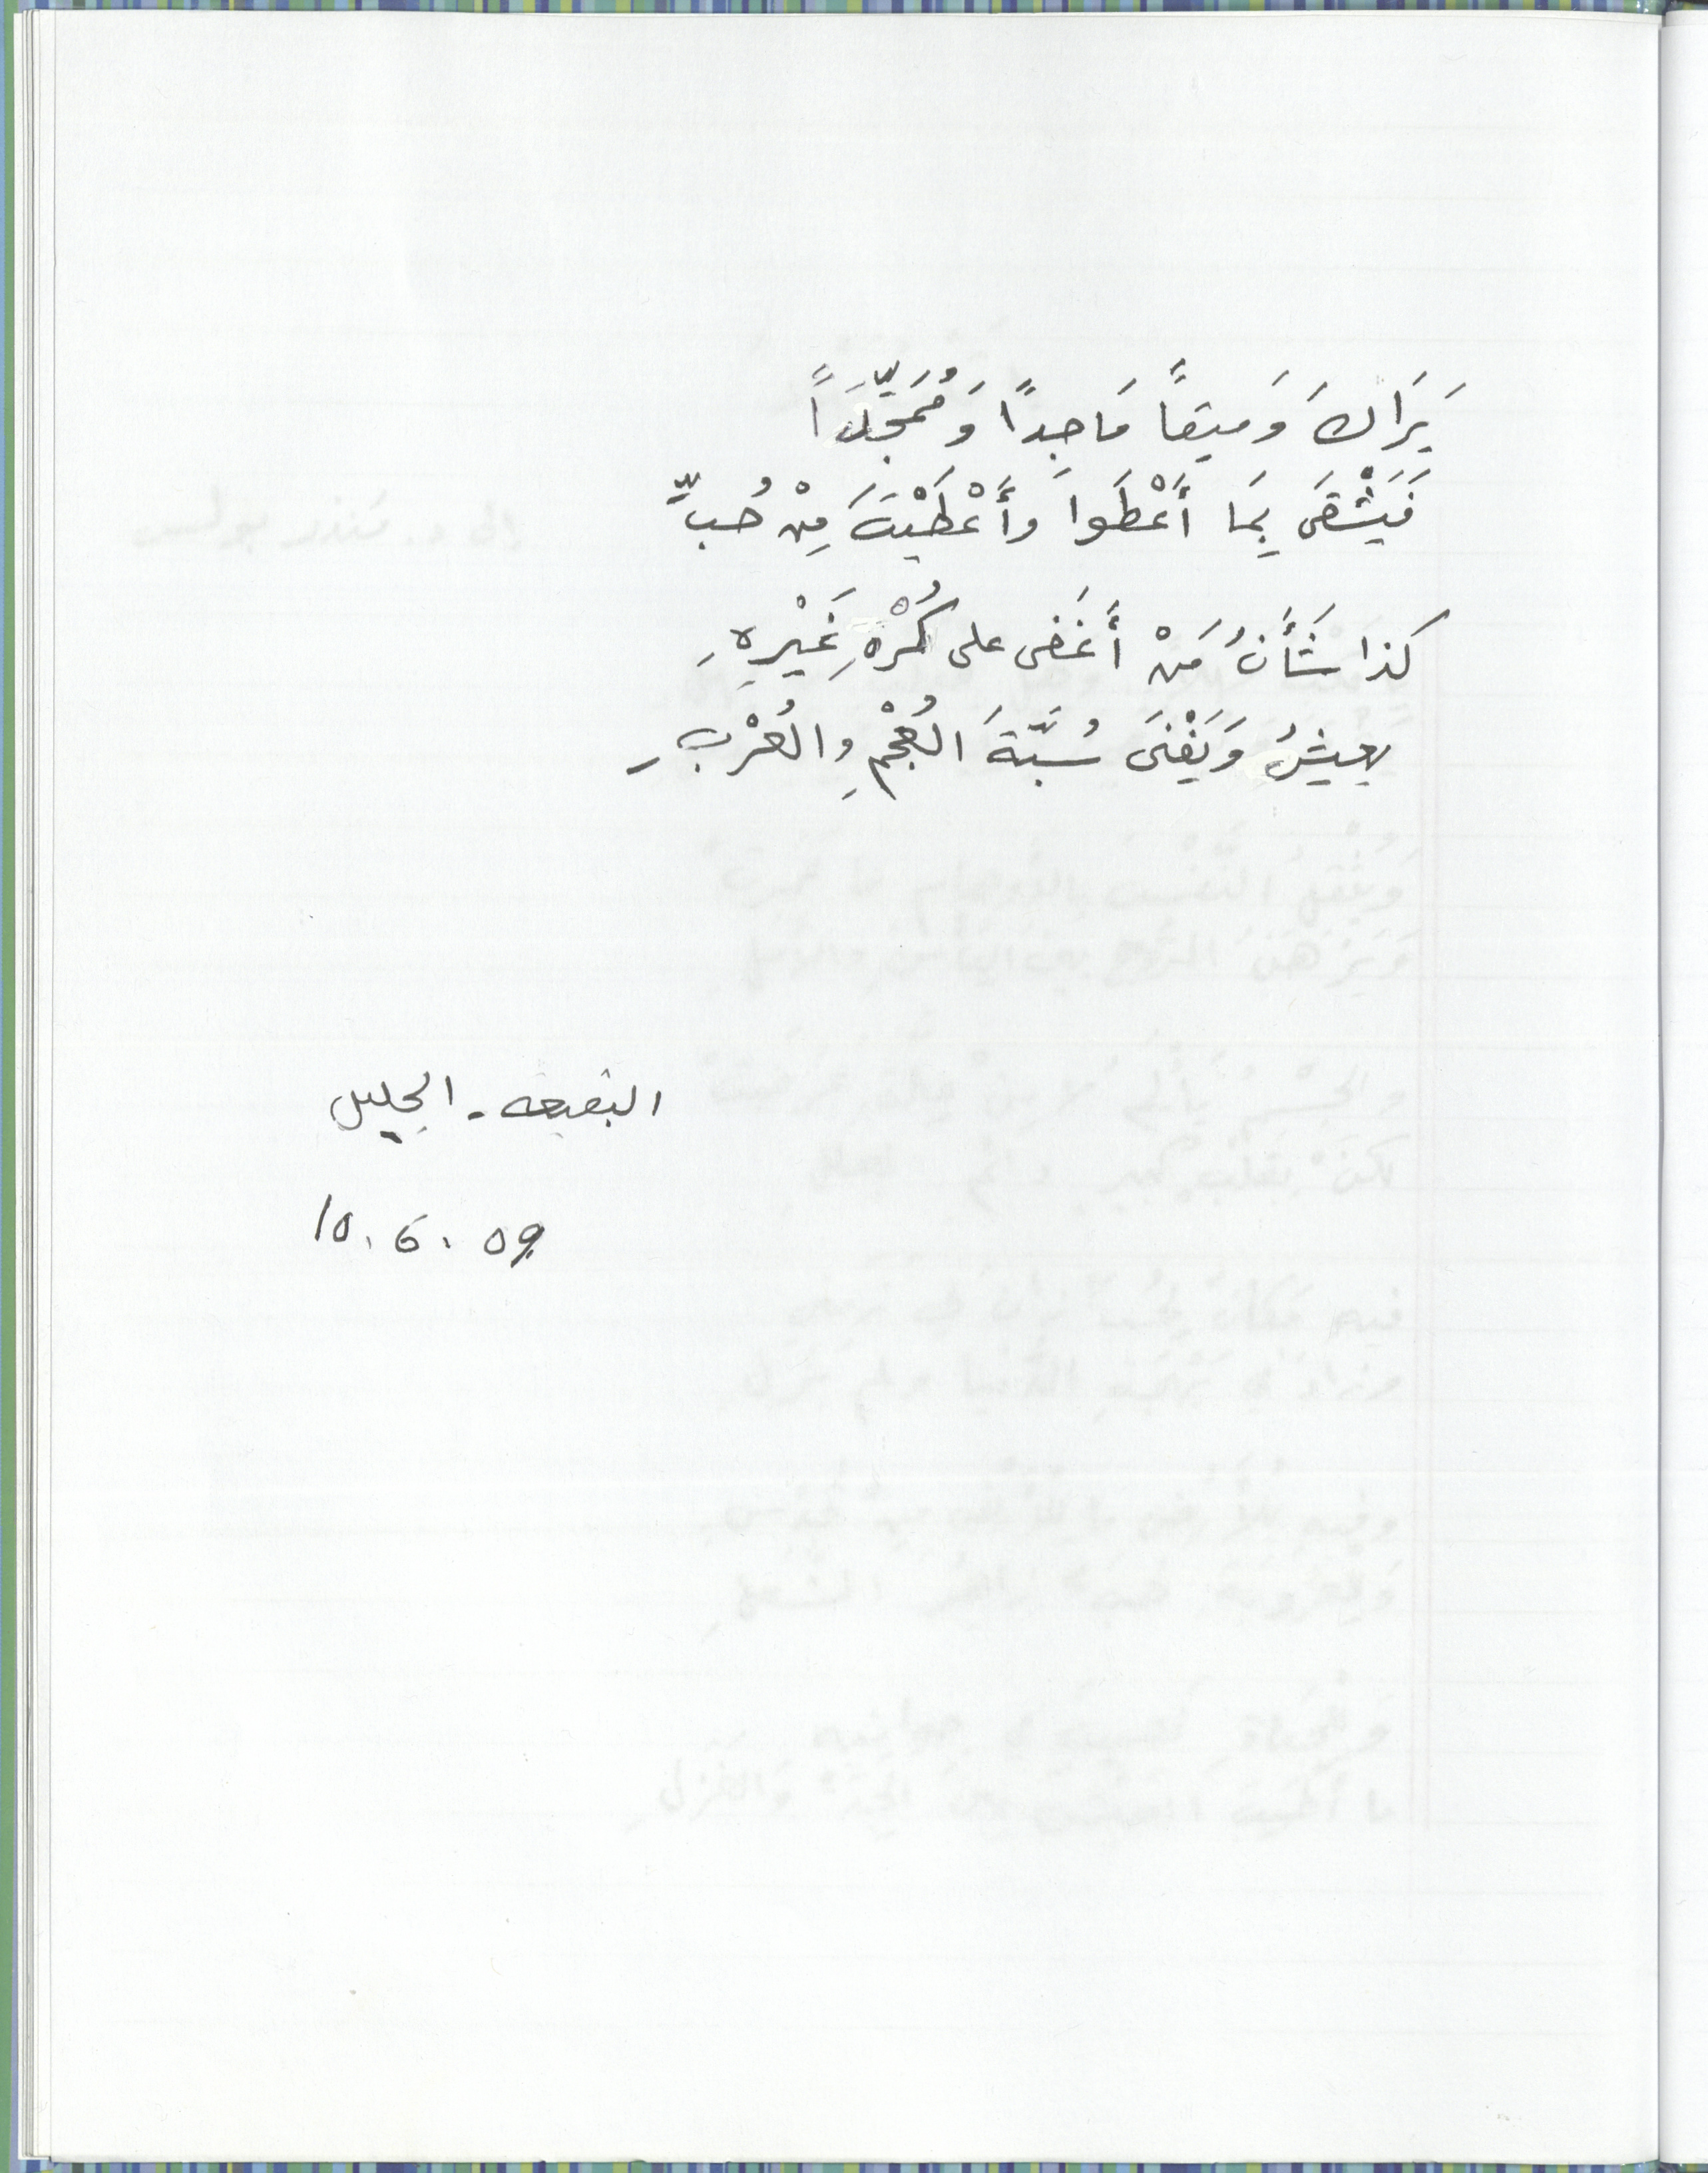 يَرَاكَ وَميقاً مَاجِداً وَمُمَجَّدَاً
فَيَشْقَى بِمَا أَعْطَوا وأَعْطَيْتَ مِنْ حُبِّ
كذا شَأنُ مَنْ أَغضَى على كُرْهِ غَيْرِهِ
يعيشُ وَيَفْنَى سُبَّةَ العُجْمِ والعُرْبِ
البقيعه - الجليل
10.6.09